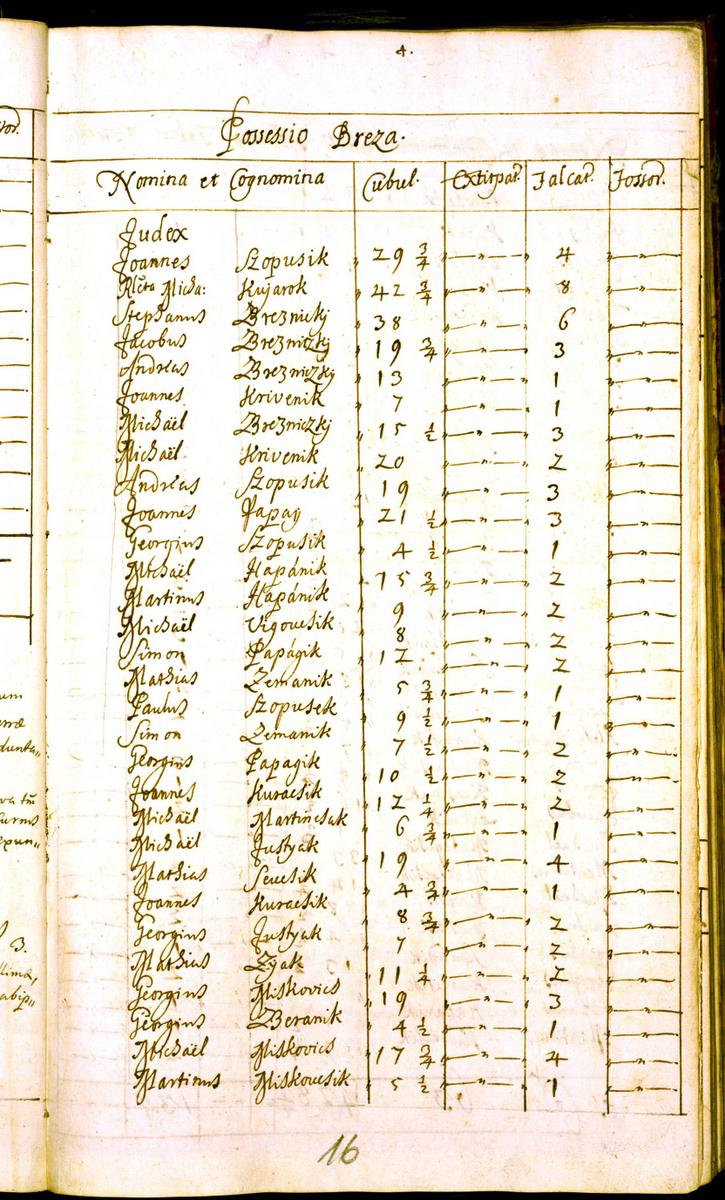 4.
Possessio Breza.
Nomina et Cognomina Cubul. Extirpat. Falcat. Fossor.
Judex
Joannes Szopusik 29 3/4 — " — 4 — " —
Rlcta Micha: Kujarok 42 3/4 — " — 8 — " —
Stephanus Breznickj 38 — " — 6 — " —
Jacobus Brezniczkj 19 3/4 — " — 3 — " —
Andreas Brezniczkj 13 — " — 1 — " —
Joannes Krivenik 7 — " — 1 — " —
Michaël Brezniczkj 15 1/2 — " — 3 — " —
Michaël Krivenik 20 — " — 2 — " —
Andreas Szopusik 19 — " — 3 — " —
Joannes Papay 21 1/2 — " — 3 — " —
Georgius Szopusik 4 1/2 — " — 1 — " —
Michaël Hapánik 15 3/4 — " — 2 — " —
Martinus Hapánik 9 — " — 2 — " —
Michaël Vigovesik 8 — " — 2 — " —
Simon Papágik 12 — " — 2 — " —
Mathias Zemanik 5 3/4 — " — 1 — " —
Paulus Szopusek 9 1/2 — " — 1 — " —
Simon Zemanik 7 1/2 — " — 2 — " —
Georgius Papagik 10 1/2 — " — 2 — " —
Joannes Kuracsik 12 1/4 — " — 2 — " —
Michaël Martincsak 6 3/4 — " — 1 — " —
Michaël Justyak 19 — " — 4 — " —
Mathias Sevesik 4 3/4 — " — 1 — " —
Joannes Kuracsik 8 3/4 — " — 2 — " —
Georgius Justyak 7 — " — 2 — " —
Mathias Zyak 11 1/4 — " — 2 — " —
Georgius Miskovics 19 — " — 3 — " —
Georgius Beranik 4 1/2 — " — 1 — " —
Michaël Miskovics 17 3/4 — " — 4 — " —
Martinus Miskovesik 5 1/2 — " — 1 — " —
16